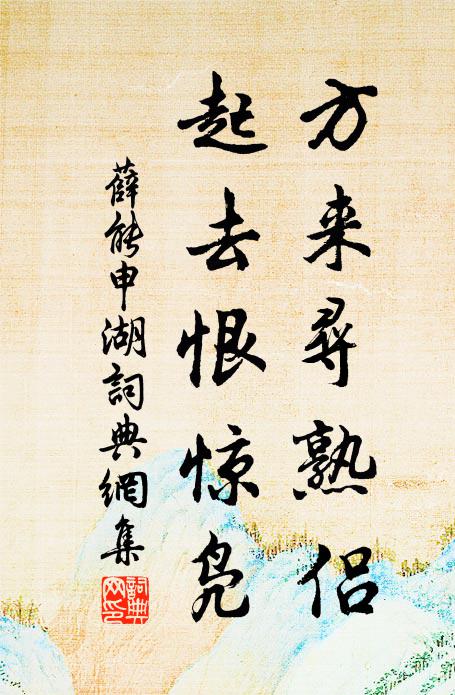 方来尋熟侣
起去恨惊凫
薛能申湖詞典網集
詞典网印